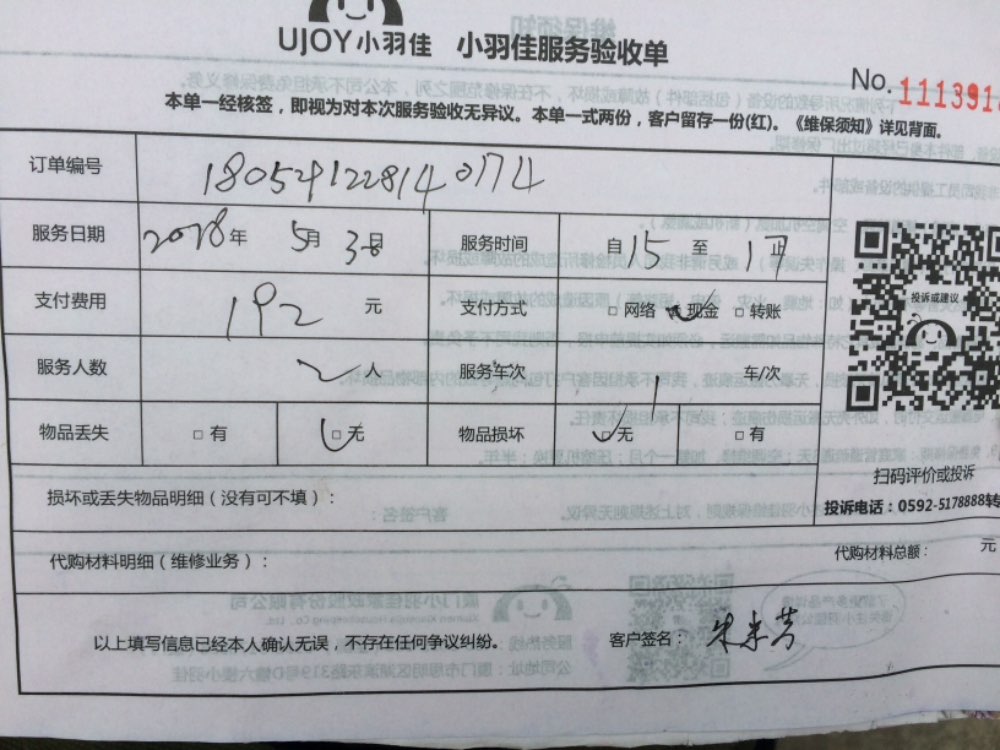 UJOY小羽佳 小羽佳服务验收单
No. 111391
本单一经核签，即视为对本次服务验收无异议。本单一式两份，客户留存一份(红)。《维保须知》详见背面。
订单编号
服务日期 2018年 5月 30日 服务时间 自 15 至 止
支付费用 192 元 支付方式 □ 网络 □ 现金 □ 转账
服务人数 2 人 服务车次 1 车/次
物品丢失 □ 有 □ 无 物品损坏 □ 无 □ 有
投诉或建议
扫码评价或投诉
投诉电话：0592-5178888转
损坏或丢失物品明细（没有可不填）：
代购材料明细（维修业务）： 代购材料总额： 元
以上填写信息已经本人确认无误，不存在任何争议纠纷。 客户签名：